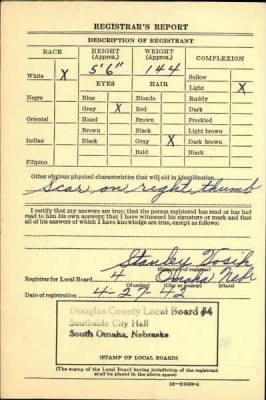 REGISTRAR'S REPORT
DESCRIPTION OF REGISTRANT
RACE HEIGHT (Approx.) WEIGHT (Approx.) COMPLEXION
White X 5'6" 144 Sallow
EYES HAIR Light X
Negro Blue Blonde Ruddy
Gray X Red Dark
Oriental Hazel Brown Freckled
Brown Black Light brown
Indian Black Gray X Dark brown
Bald Black
Filipino
Other obvious physical characteristics that will aid in identification
Scar on right thumb
I certify that my answers are true; that the person registered has read or has had
read to him his own answers; that I have witnessed his signature or mark and that
all of his answers of which I have knowledge are true, except as follows:
Stanley
(Signature of registrar)
Registrar for Local Board 4 Omaha Nebr
(Number) (City or county) (State)
Date of registration 4-27-42
Douglas County Local Board #4
Southside City Hall
South Omaha, Nebraska
(STAMP OF LOCAL BOARD)
(The stamp of the Local Board having jurisdiction of the registrant
shall be placed in the above space)